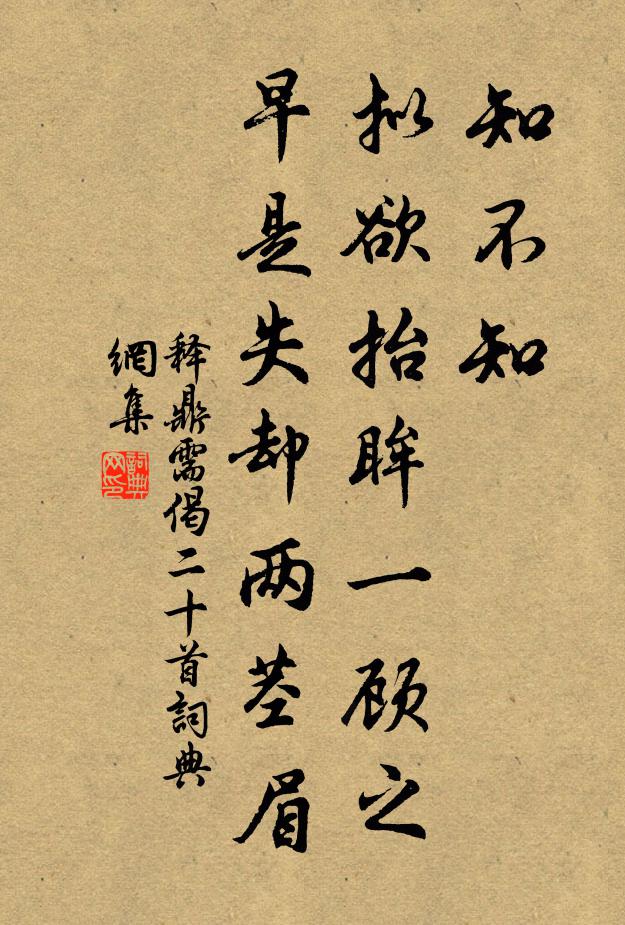 知不知
拟欲抬眸一顾之
早是失却两茎眉
释鼎需偈二十首詞典
網集
詞典
网印